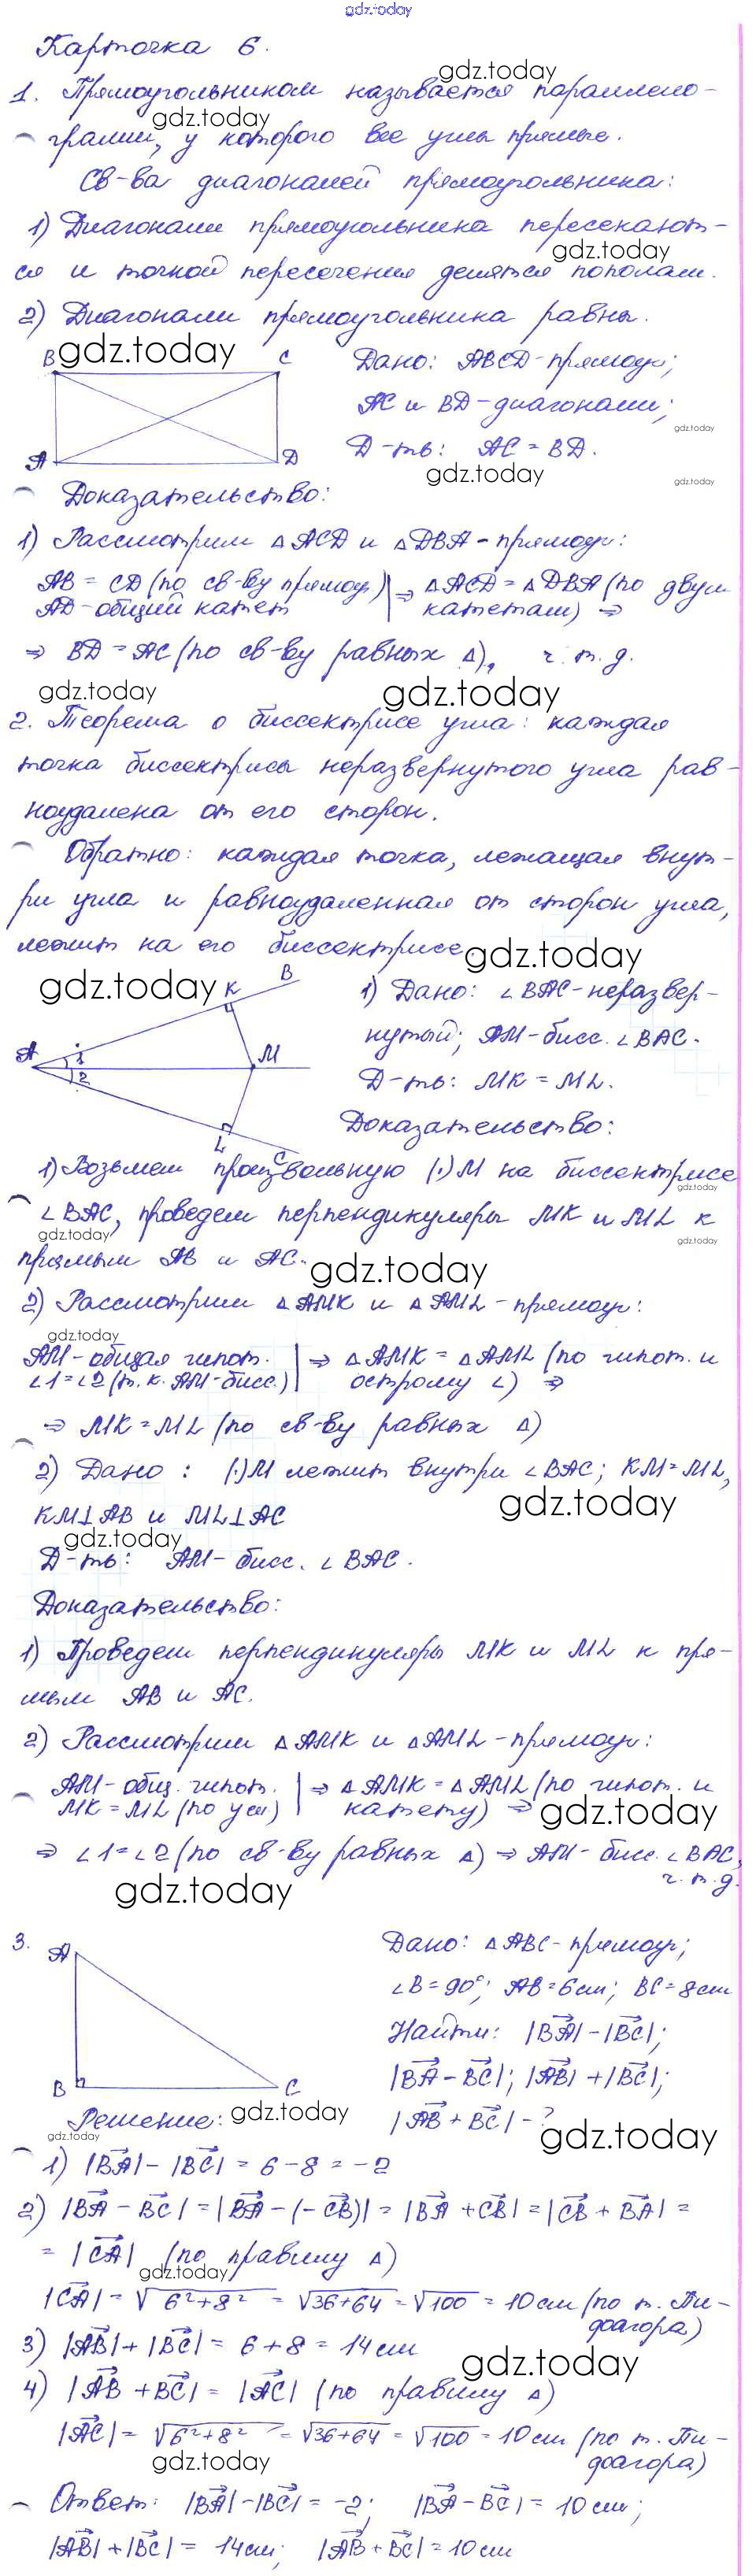 gdz.today
Карточка 6.
gdz.today
1. Прямоугольником называется параллело-
gdz.today
грамм, у которого все углы прямые.
Св-ва диагоналей прямоугольника:
1) Диагонали прямоугольника пересекают-
gdz.today
ся и точкой пересечения делятся пополам.
2) Диагонали прямоугольника равны.
gdz.today
B C
A D
Дано: ABCD - прямоуг;
AC и BD - диагонали;
gdz.today
Д-ть: AC = BD.
gdz.today
gdz.today
Доказательство:
1) Рассмотрим △ACD и △DBA - прямоуг:
AB = CD (по св-ву прямоуг) | ⇒ △ACD = △DBA (по двум
AD - общий катет | катетам) ⇒
⇒ BD = AC (по св-ву равных △), ч.т.д.
gdz.today gdz.today
2. Теорема о биссектрисе угла: каждая
точка биссектрисы неразвернутого угла рав-
ноудалена от его сторон.
Обратно: каждая точка, лежащая внут-
ри угла и равноудаленная от сторон угла,
лежит на его биссектрисе.
gdz.today
gdz.today
K B
A 1 2 M
L C
1) Дано: ∠BAC - неразвер-
нутый; AM - бисс. ∠BAC.
Д-ть: MK = ML.
Доказательство:
1) Возьмем произвольную (·) M на биссектрисе
gdz.today
∠BAC, проведем перпендикуляры MK и ML к
gdz.today gdz.today
прямым AB и AC.
gdz.today
2) Рассмотрим △AMK и △AML - прямоуг:
gdz.today
AM - общая гипот. | ⇒ △AMK = △AML (по гипот. и
∠1 = ∠2 (т.к. AM - бисс.) | острому ∠) ⇒
⇒ MK = ML (по св-ву равных △)
2) Дано: (·) M лежит внутри ∠BAC; KM = ML,
gdz.today
KM ⊥ AB и ML ⊥ AC
gdz.today
Д-ть: AM - бисс. ∠BAC.
Доказательство:
1) Проведем перпендикуляры MK и ML к пря-
мым AB и AC.
2) Рассмотрим △AMK и △AML - прямоуг:
AM - общ. гипот. | ⇒ △AMK = △AML (по гипот. и
MK = ML (по усл) | катету) ⇒
gdz.today
⇒ ∠1 = ∠2 (по св-ву равных △) ⇒ AM - бисс. ∠BAC,
ч.т.д.
gdz.today
3.
A
B C
Дано: △ABC - прямоуг;
∠B = 90°; AB = 6 см; BC = 8 см
Найти: |BA→| - |BC→|;
|BA→ - BC→|; |AB→| + |BC→|;
|AB→ + BC→| - ?
gdz.today
gdz.today
Решение:
gdz.today
1) |BA→| - |BC→| = 6 - 8 = -2
2) |BA→ - BC→| = |BA→ - (-CB→)| = |BA→ + CB→| = |CB→ + BA→| =
= |CA→| (по правилу △)
gdz.today
|CA→| = √6²+8² = √36+64 = √100 = 10 см (по т. Пи-
фагора)
3) |AB→| + |BC→| = 6 + 8 = 14 см
gdz.today
4) |AB→ + BC→| = |AC→| (по правилу △)
|AC→| = √6²+8² = √36+64 = √100 = 10 см (по т. Пи-
фагора)
gdz.today
Ответ: |BA→| - |BC→| = -2; |BA→ - BC→| = 10 см;
|AB→| + |BC→| = 14 см; |AB→ + BC→| = 10 см